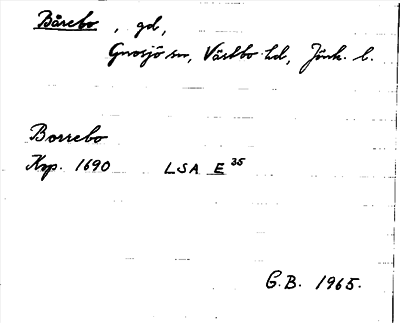 Bårebo, gd,
Gnosjö sn, Västbo hd, Jönk. l.
Borrebo
Ksp. 1690 LSA E 35
G.B. 1965.